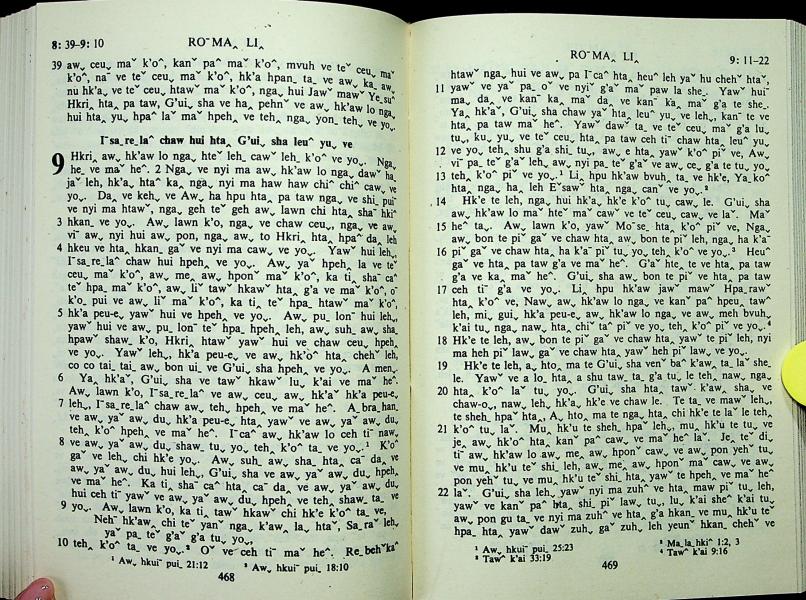 8: 39–9: 10
RO ̄ MA‸ LI‸
39 aw˯ ceu˯ maˇ k'o^, kan ̌ pa^ maˇ k'o^, mvuh ve teˇ ceu˯ maˇ
k'o^, na ̌ ve teˇ ceu˯ ma ̌ k'o^, hk'a hpan_ ta_ ve aw˯ ka_ aw˯
nu hk'a˯ ve teˇ ceu˯ htawˇ maˇ k'o^, nga˯ hui Jawˇ mawˇ Ye_su^
Hkri˯ hta‸ pa taw, G'ui˯ sha ve ha˯ pehnˇ ve aw˯ hk'aw lo nga˯
hui hta‸ yu˯ hpaˇ la ma ̌ hpehˇ ve teh˯ nga˯ yon_ teh˯ ve yo˯.
I ̄ sa_re_la^ chaw hui hta‸ G'ui˯ sha leu ̌ yu˯ ve
9 Hkri˯ aw˯ hk'aw lo nga˯ hteˇ leh_ cawˇ leh˯ k'o^ ve yo˯. Nga˯
he˯ ve maˇ he^. 2 Nga˯ ve nyi ma aw˯ hk'aw lo nga˯ dawˇ ha˯
jaˇ leh, hk'a˯ hta^ ka‸ nga˯ nyi ma haw haw chi^ chi^ caw˯ ve
yo˯. Da˯ ve keh˯ ve Aw˯ ha hpu hta‸ pa taw nga˯ ve shi_ pui ̌
ve nyi ma htawˇ, nga˯ geh ̌ teˇ geh aw˯ lawn chi hta‸ sha ̌ hki^
3 hkan˯ ve yo˯. Aw˯ lawn k'o, nga˯ ve chaw ceu˯, nga˯ ve aw˯
vi ̌ aw˯ nyi hui aw˯ pon, nga˯ aw˯ to Hkri˯ hta‸ hpaˇ da˯ leh
4 hkeu ve hta‸ hkan˯ gaˇ ve nyi ma caw ve yo˯. Yawˇ hui leh˯,
I ̄ sa_re_la^ chaw hui hpehˇ ve yo˯. Aw˯ yaˇ hpehˇ la ve teˇ
ceu˯ maˇ k'o^, aw˯ me˯ aw˯ hponˇ maˇ k'o^, ka ti˯ sha ̌ caˇ
teˇ hpa˯ maˇ k'o^, aw˯ liˇ taw ̌ hkawˇ hta‸ g'a ve maˇ k'o^, oˇ
k'o_ pui ve aw˯ liˇ maˇ k'o^, ka ti˯ te ̌ hpa_ htawˇ maˇ k'o^,
5 hk'a peu-e˯ yawˇ hui ve hpehˇ ve yo˯. Aw˯ pu_ lon ̄ hui leh˯,
yawˇ hui ve aw˯ pu_ lon ̄ teˇ hpa_ hpehˇ leh, aw˯ suh_ aw˯ sha_
hpawˇ shaw_ k'o, Hkri˯ htawˇ yawˇ hui ve chaw ceu˯ hpehˇ
ve yo˯. Yawˇ leh˯, hk'a peu-e˯ ve aw˯ hk'o^ hta‸ chehˇ leh,
co co tai_ tai_ aw˯ bon ui˯ ve G'ui˯ sha hpehˇ ve yo˯. A men˯.
6 Ya‸ hk'aˇ, G'ui˯ sha ve tawˇ hkawˇ lu˯ k'ai ve maˇ he^.
Aw˯ lawn k'o, I ̄ sa_re_la^ ve aw˯ ceu˯ aw˯ hk'aˇ hk'a peu-e˯
7 leh˯, I ̄ sa_re_la^ chaw aw˯ teh˯ hpehˇ ve maˇ he^. A_bra_han_
ve aw˯ yaˇ aw˯ du˯ hk'a peu-e˯ hta‸ yawˇ ve aw˯ yaˇ aw˯ du˯
teh˯ k'o^ hpehˇ ve maˇ he^. I ̄ caˇ aw˯ hk'aw lo ceh ti ̌ naw˯
8 ve aw˯ yaˇ aw˯ du˯ shaw_ tu˯ yo˯ teh˯ k'o^ ta˯ ve yo˯.¹ K'oˇ
gaˇ ve leh˯ chi hk'e yo˯. Aw˯ suh_ aw˯ sha_ hta‸ ca ̌ da˯ ve
aw˯ yaˇ aw˯ du˯ hui leh˯, G'ui˯ sha ve aw˯ yaˇ aw˯ du˯ hpehˇ
ve maˇ he^. Ka ti˯ sha ̌ caˇ hta‸ ca ̌ da˯ ve aw˯ yaˇ aw˯ du˯
hui ceh ti ̌ yawˇ ve aw˯ yaˇ aw˯ du˯ hpehˇ ve teh˯ shaw_ ta˯ ve
9 yo˯. Aw˯ lawn k'o, ka ti˯ tawˇ hkawˇ chi hk'e k'o^ ta˯ ve,
Neh ̌ hk'aw˯ chi teˇ yan ̌ nga˯ k'aw˯ la˯ htaˇ, Sa_raˇ leh˯
yaˇ pa˯ teˇ g'aˇ g'a tu˯ yo˯,
10 teh˯ k'o^ ta˯ ve yo˯.² Oˇ ve ceh ti ̌ maˇ he^. Re_behˇka^
¹ Aw˯ hkui ̄ pui_ 21:12
² Aw˯ hkui ̄ pui_ 18:10
468
RO ̄ MA‸ LI‸
9: 11–22
htawˇ nga˯ hui ve aw˯ pa I ̄ ca^ hta‸ heu^ leh yaˇ hu chehˇ htaˇ,
11 yawˇ ve yaˇ pa˯ oˇ ve nyiˇ g'aˇ maˇ paw la she_. Yawˇ hui ̌
ma˯ da˯ ve kan ̌ ka‸ maˇ da˯ ve kan ̌ ka‸ maˇ g'a te she_.
Ya‸ hk'aˇ, G'ui˯ sha chaw yaˇ hta‸ leu ̌ yu˯ ve leh˯, kan ̌ te ve
hta‸ pa taw maˇ he^. Yawˇ dawˇ ta˯ ve teˇ ceu˯ maˇ g'a lu˯
tu˯, ku˯ yu˯ ve teˇ ceu˯ hta‸ pa taw ceh ti ̌ chaw hta‸ leu ̌ yu˯
12 ve yo˯ teh˯ shu g'a shi_ tu˯, aw˯ e hta‸ yawˇ k'o^ piˇ ve, Aw˯
vi ̌ pa_ teˇ g'aˇ leh˯ aw˯ nyi pa_ teˇ g'aˇ ve aw˯ ce˯ g'a te tu˯ yo˯
13 teh˯ k'o^ piˇ ve yo˯.¹ Li‸ hpu hk'aw bvuh˯ ta˯ ve hk'e, Ya_ko^
hta‸ nga˯ ha˯ leh E ̌ sawˇ hta‸ nga˯ can ̌ ve yo˯.²
14 Hk'e te leh, nga˯ hui hk'a˯ hk'e k'o^ tu˯ caw˯ le. G'ui˯ sha
aw˯ hk'aw lo maˇ hteˇ maˇ cawˇ ve teˇ ceu˯ caw˯ ve laˇ. Maˇ
15 heˇ ta˯. Aw˯ lawn k'o, yawˇ Moˇse_ hta‸ k'o^ piˇ ve, Nga˯
aw˯ bon te piˇ gaˇ ve chaw hta‸ aw˯ bon te piˇ leh, nga˯ ha k'aˇ
16 piˇ gaˇ ve chaw hta‸ ha k'aˇ piˇ tu˯ yo˯ teh˯ k'o^ ve yo˯.³ Heuˇ
gaˇ ve hta‸ pa taw g'a ve maˇ he^. G'aˇ hte‸ te ve hta‸ pa taw
g'a ve ka‸ maˇ he^. G'ui˯ sha aw˯ bon te piˇ ve hta‸ pa taw
17 ceh ti ̌ g'a ve yo˯. Li‸ hpu hk'aw jawˇ mawˇ Hpa_rawˇ
hta‸ k'o^ ve, Naw˯ aw˯ hk'aw lo nga˯ ve kan ̌ pa^ hpeu˯ tawˇ
leh, mi˯ gui˯ hk'a peu-e˯ aw˯ hk'aw lo nga˯ ve aw˯ meh bvuh˯
k'ai tu˯ nga˯ naw˯ hta‸ chi ̌ ta ̌ piˇ ve yo˯ teh˯ k'o^ piˇ ve yo˯.⁴
18 Hk'e te leh, aw˯ bon te piˇ gaˇ ve chaw hta‸ yawˇ te piˇ leh, nyi
ma heh piˇ law˯ gaˇ ve chaw hta‸ yawˇ heh piˇ law˯ ve yo˯.
19 Hk'e te leh, a˯ hto˯ ma te G'ui˯ sha ven ̌ ba^ k'aw‸ ta˯ laˇ she_
le. Yawˇ ve a lo_ hta‸ a shu taw_ ta˯ g'a tu˯ le teh˯ naw˯ nga˯
20 hta‸ k'o^ laˇ tu˯ yo˯. G'ui˯ sha hta‸ tawˇ k'aw‸ sha˯ ve
chaw-o˯, naw˯ leh˯ hk'a˯ hk'e ve chaw le. Te ta˯ ve mawˇ leh˯,
te sheh_ hpaˇ hta‸, A˯ hto˯ ma te nga˯ hta‸ chi hk'e te laˇ le teh˯
21 k'o^ tu˯ laˇ. Mu˯ hk'u te sheh_ hpaˇ leh˯, mu˯ hk'u te tu˯ ve
je˯ aw˯ hk'o^ hta‸ kan ̌ pa^ caw˯ ve maˇ heˇ laˇ. Je˯ te ̌ di˯
ti ̌ aw˯ hk'aw lo aw˯ me˯ aw˯ hponˇ caw˯ ve aw˯ pon yehˇ tu˯
ve mu˯ hk'u te ̌ shi_ leh, aw˯ me˯ aw˯ hponˇ maˇ caw˯ ve aw˯
pon yehˇ tu˯ ve mu˯ hk'u te ̌ shi_ hta‸ yawˇ te hpehˇ ve maˇ he^
22 laˇ. G'ui˯ sha leh˯ yawˇ nyi ma zuh^ ve hta‸ maw piˇ tu˯ leh,
yawˇ ve kan ̌ pa^ hta‸ shi_ piˇ law˯ tu˯ lu˯ k'ai she^ k'ai tu˯
aw˯ pon gu ta˯ ve nyi ma zuh^ ve hta‸ g'a hkan˯ ve mu˯ hk'u te ̌
hpa_ hta‸ yawˇ dawˇ zuh˯ gaˇ zuh˯ leh yeun ̌ hkan˯ chehˇ ve
¹ Aw˯ hkui ̄ pui_ 25:23
² Ma_la_hki^ 1:2, 3
³ Tawˇ k'ai 33:19
⁴ Tawˇ k'ai 9:16
469